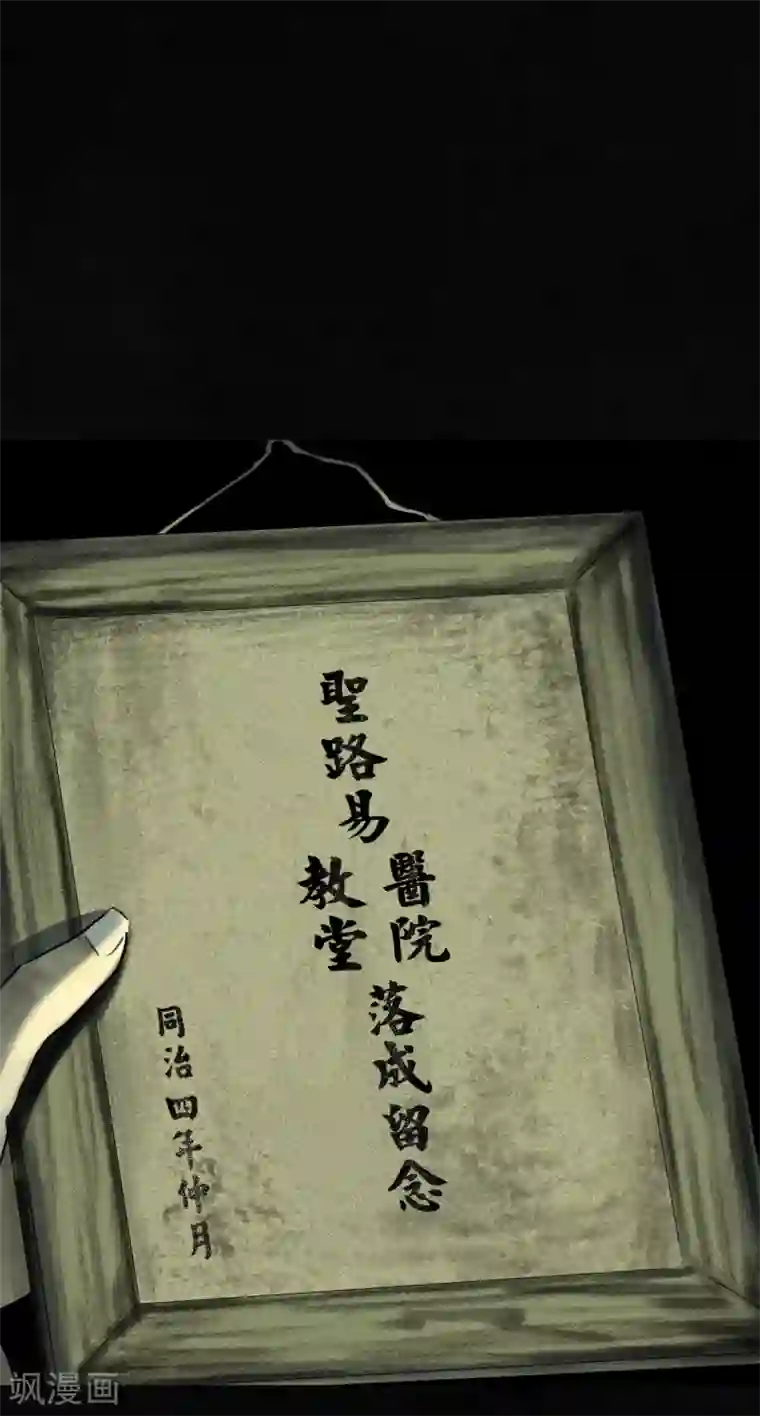 聖路易
醫院
教堂
落成留念
同治四年仲月
飒漫画